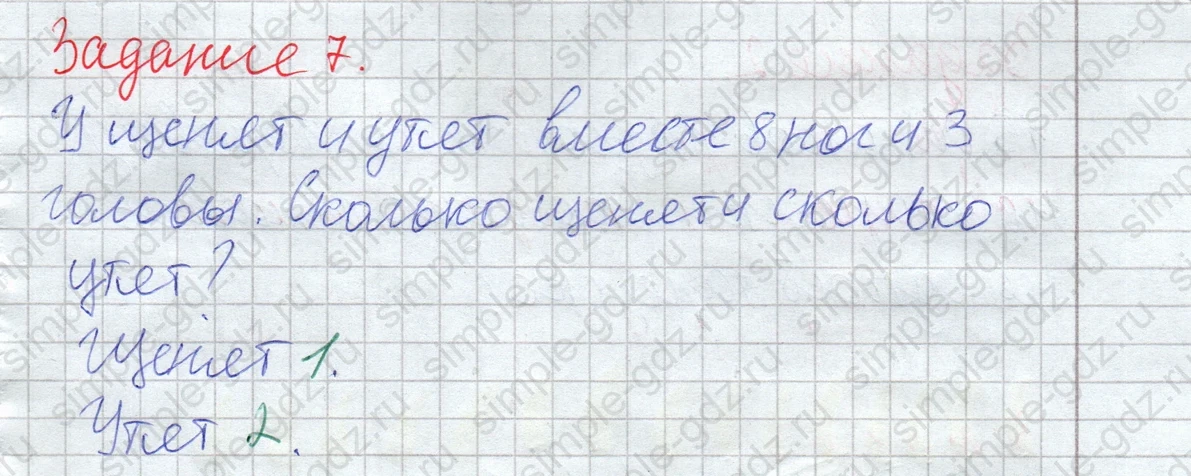 Задание 7.
У щенят и утят вместе 8 ног и 3
головы. Сколько щенят и сколько
утят?
Щенят 1.
Утят 2.
simple-gdz.ru